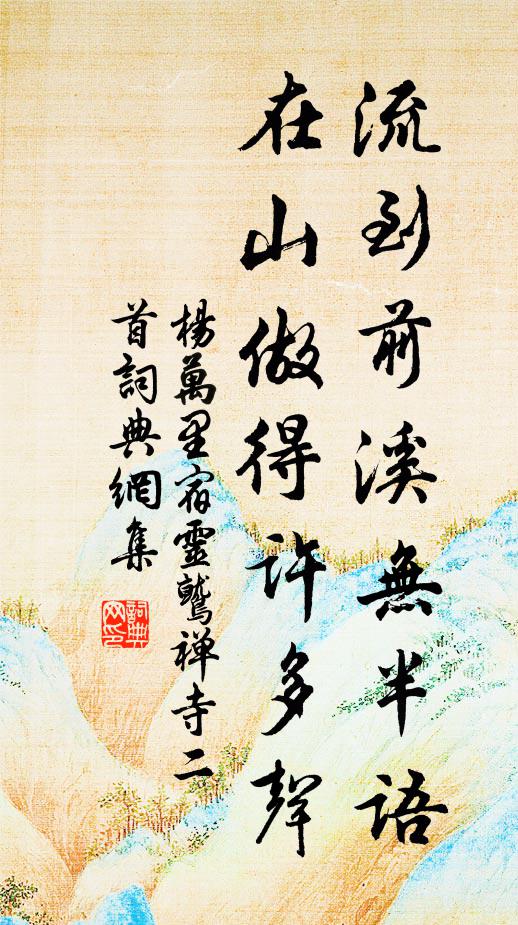 流到前溪無半語
在山做得許多聲
楊萬里宿靈鷲禅寺二
首詞典網集
詞典
网印